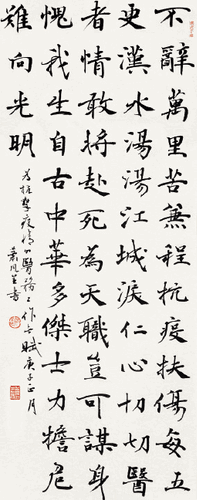 不辭萬里苦兼程抗疫扶傷每五
更漢水湯湯江城淚仁心切切醫
者情敢將赴死為天職豈可謀身
愧我生自古中華多傑士力擔危
難向光明
為抗擊疫醫務工作者賦庚子正月
書